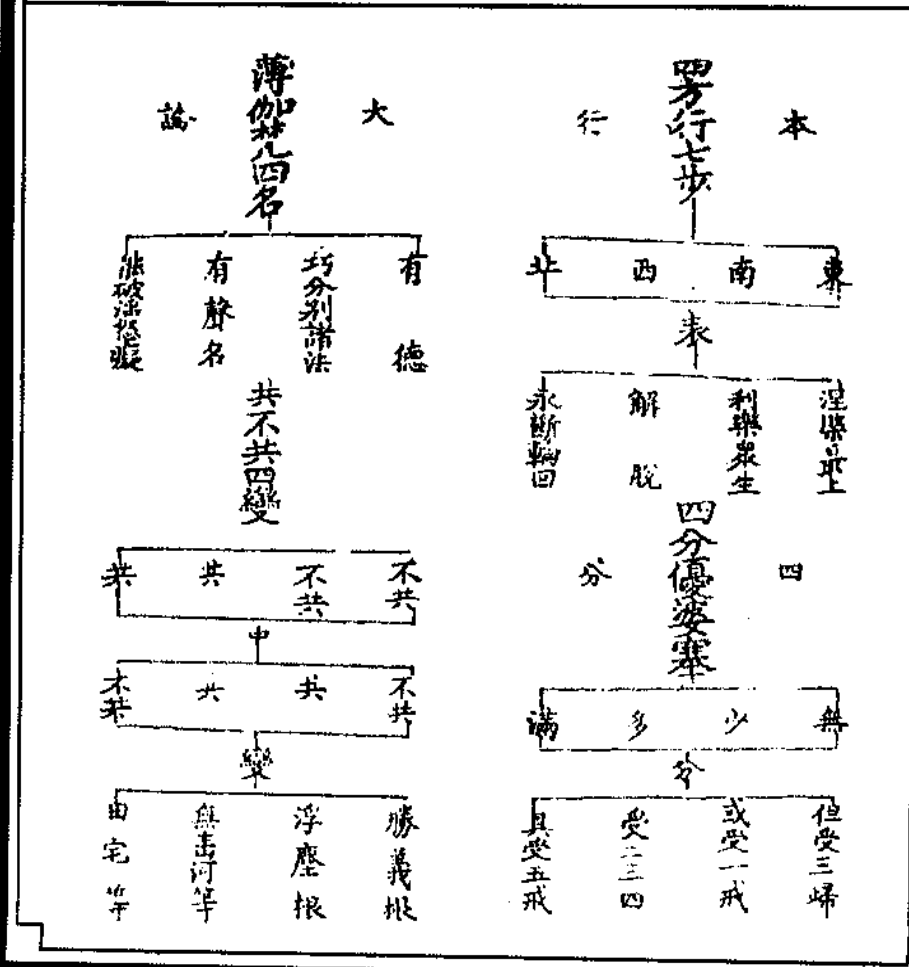 本行
四方行七步
東
南
西
北
表
涅槃最上
利樂眾生
解脫
永斷輪回
四分
四分優婆塞
無
少
多
滿
分
但受三歸
或受一戒
受二三四
具受五戒
大論
薄伽梵四名
有德
巧分別諸法
有聲名
能破婬怒癡
共不共四變
不共
不共
共
共
中
不共
共
共
不共
變
勝義根
浮塵根
河等
田宅等